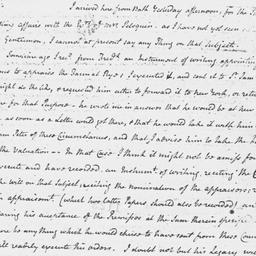 I arrived here from Bath Yesterday afternoon, for the
affairs with the of Mrs. Peloquin - as I have not yet seen
Gentlemen, I cannot at present say any Thing on that Subject.
Some time ago Fred: from an Instrument of writing, appointing
to appraise the Samul Pyo's, I executed it, and sent it to Sr. Sam
might do the like, & requested him either to forward it to new York, or retu
for that Purpose - he wrote me in answer that he would be at new
as soon as a letter could get there, & that he would take it with him
these Circumstances, and that I advise him to take the
the Valuation - In that Case I think it might not be amiss for
execute and have recorded, an Instrument of writing, reciting the
the will on that Subject, reciting the nomination of the appraisers,
appraisement, (which two latter Papers should also be recorded), an
his acceptance of the Premises at the Sum therein specified
be any thing which he would chuse to have sent from these Coun
will readily execute his orders. I doubt not but his Legacy w